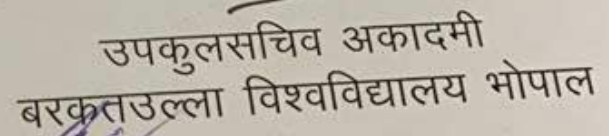 उपकुलसचिव अकादमी
बरकतउल्ला विश्वविद्यालय भोपाल